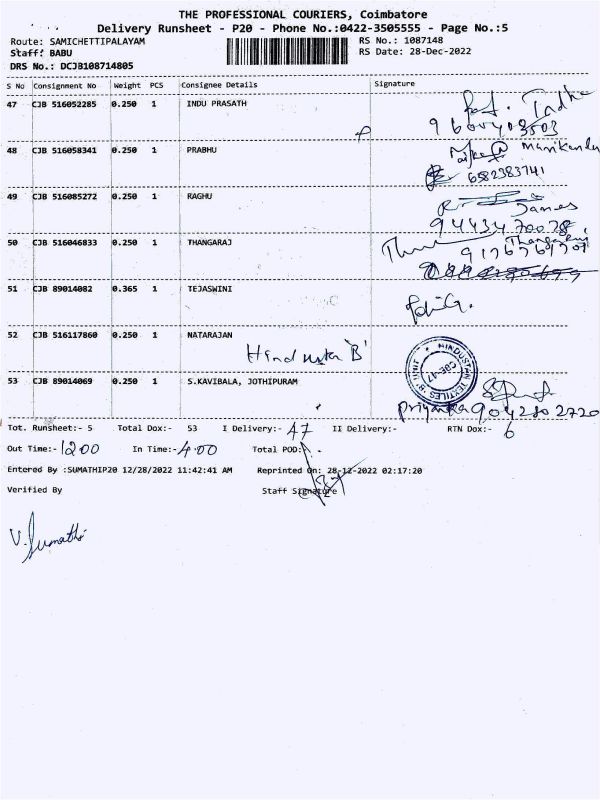 THE PROFESSIONAL COURIERS, Coimbatore
Delivery Runsheet - P20 - Phone No.:0422-3505555 - Page No.:5
Route: SAMICHETTIPALAYAM
RS No.: 1087148
Staff: BABU
RS Date: 28-Dec-2022
DRS No.: DCJB108714805
S No Consignment No Weight PCS Consignee Details Signature
47 CJB 516052285 0.250 1 INDU PRASATH
48 CJB 516058341 0.250 1 PRABHU
Manikandu
6382383741
49 CJB 516085272 0.250 1 RAGHU
James
9443470078
50 CJB 516046833 0.250 1 THANGARAJ
51 CJB 89014082 0.365 1 TEJASWINI
52 CJB 516117860 0.250 1 NATARAJAN
'B'
HINDUSTAN TEXTILES 'B' UNIT
CBE-47
53 CJB 89014069 0.250 1 S.KAVIBALA, JOTHIPURAM
Priyanka 9042802720
Tot. Runsheet:- 5 Total Dox:- 53 I Delivery:- 47 II Delivery:- RTN Dox:- 6
Out Time:- 12.00 In Time:- 4.00 Total POD:-
Entered By :SUMATHIP20 12/28/2022 11:42:41 AM Reprinted On: 28-12-2022 02:17:20
Verified By Staff Signature
V. Sumathi